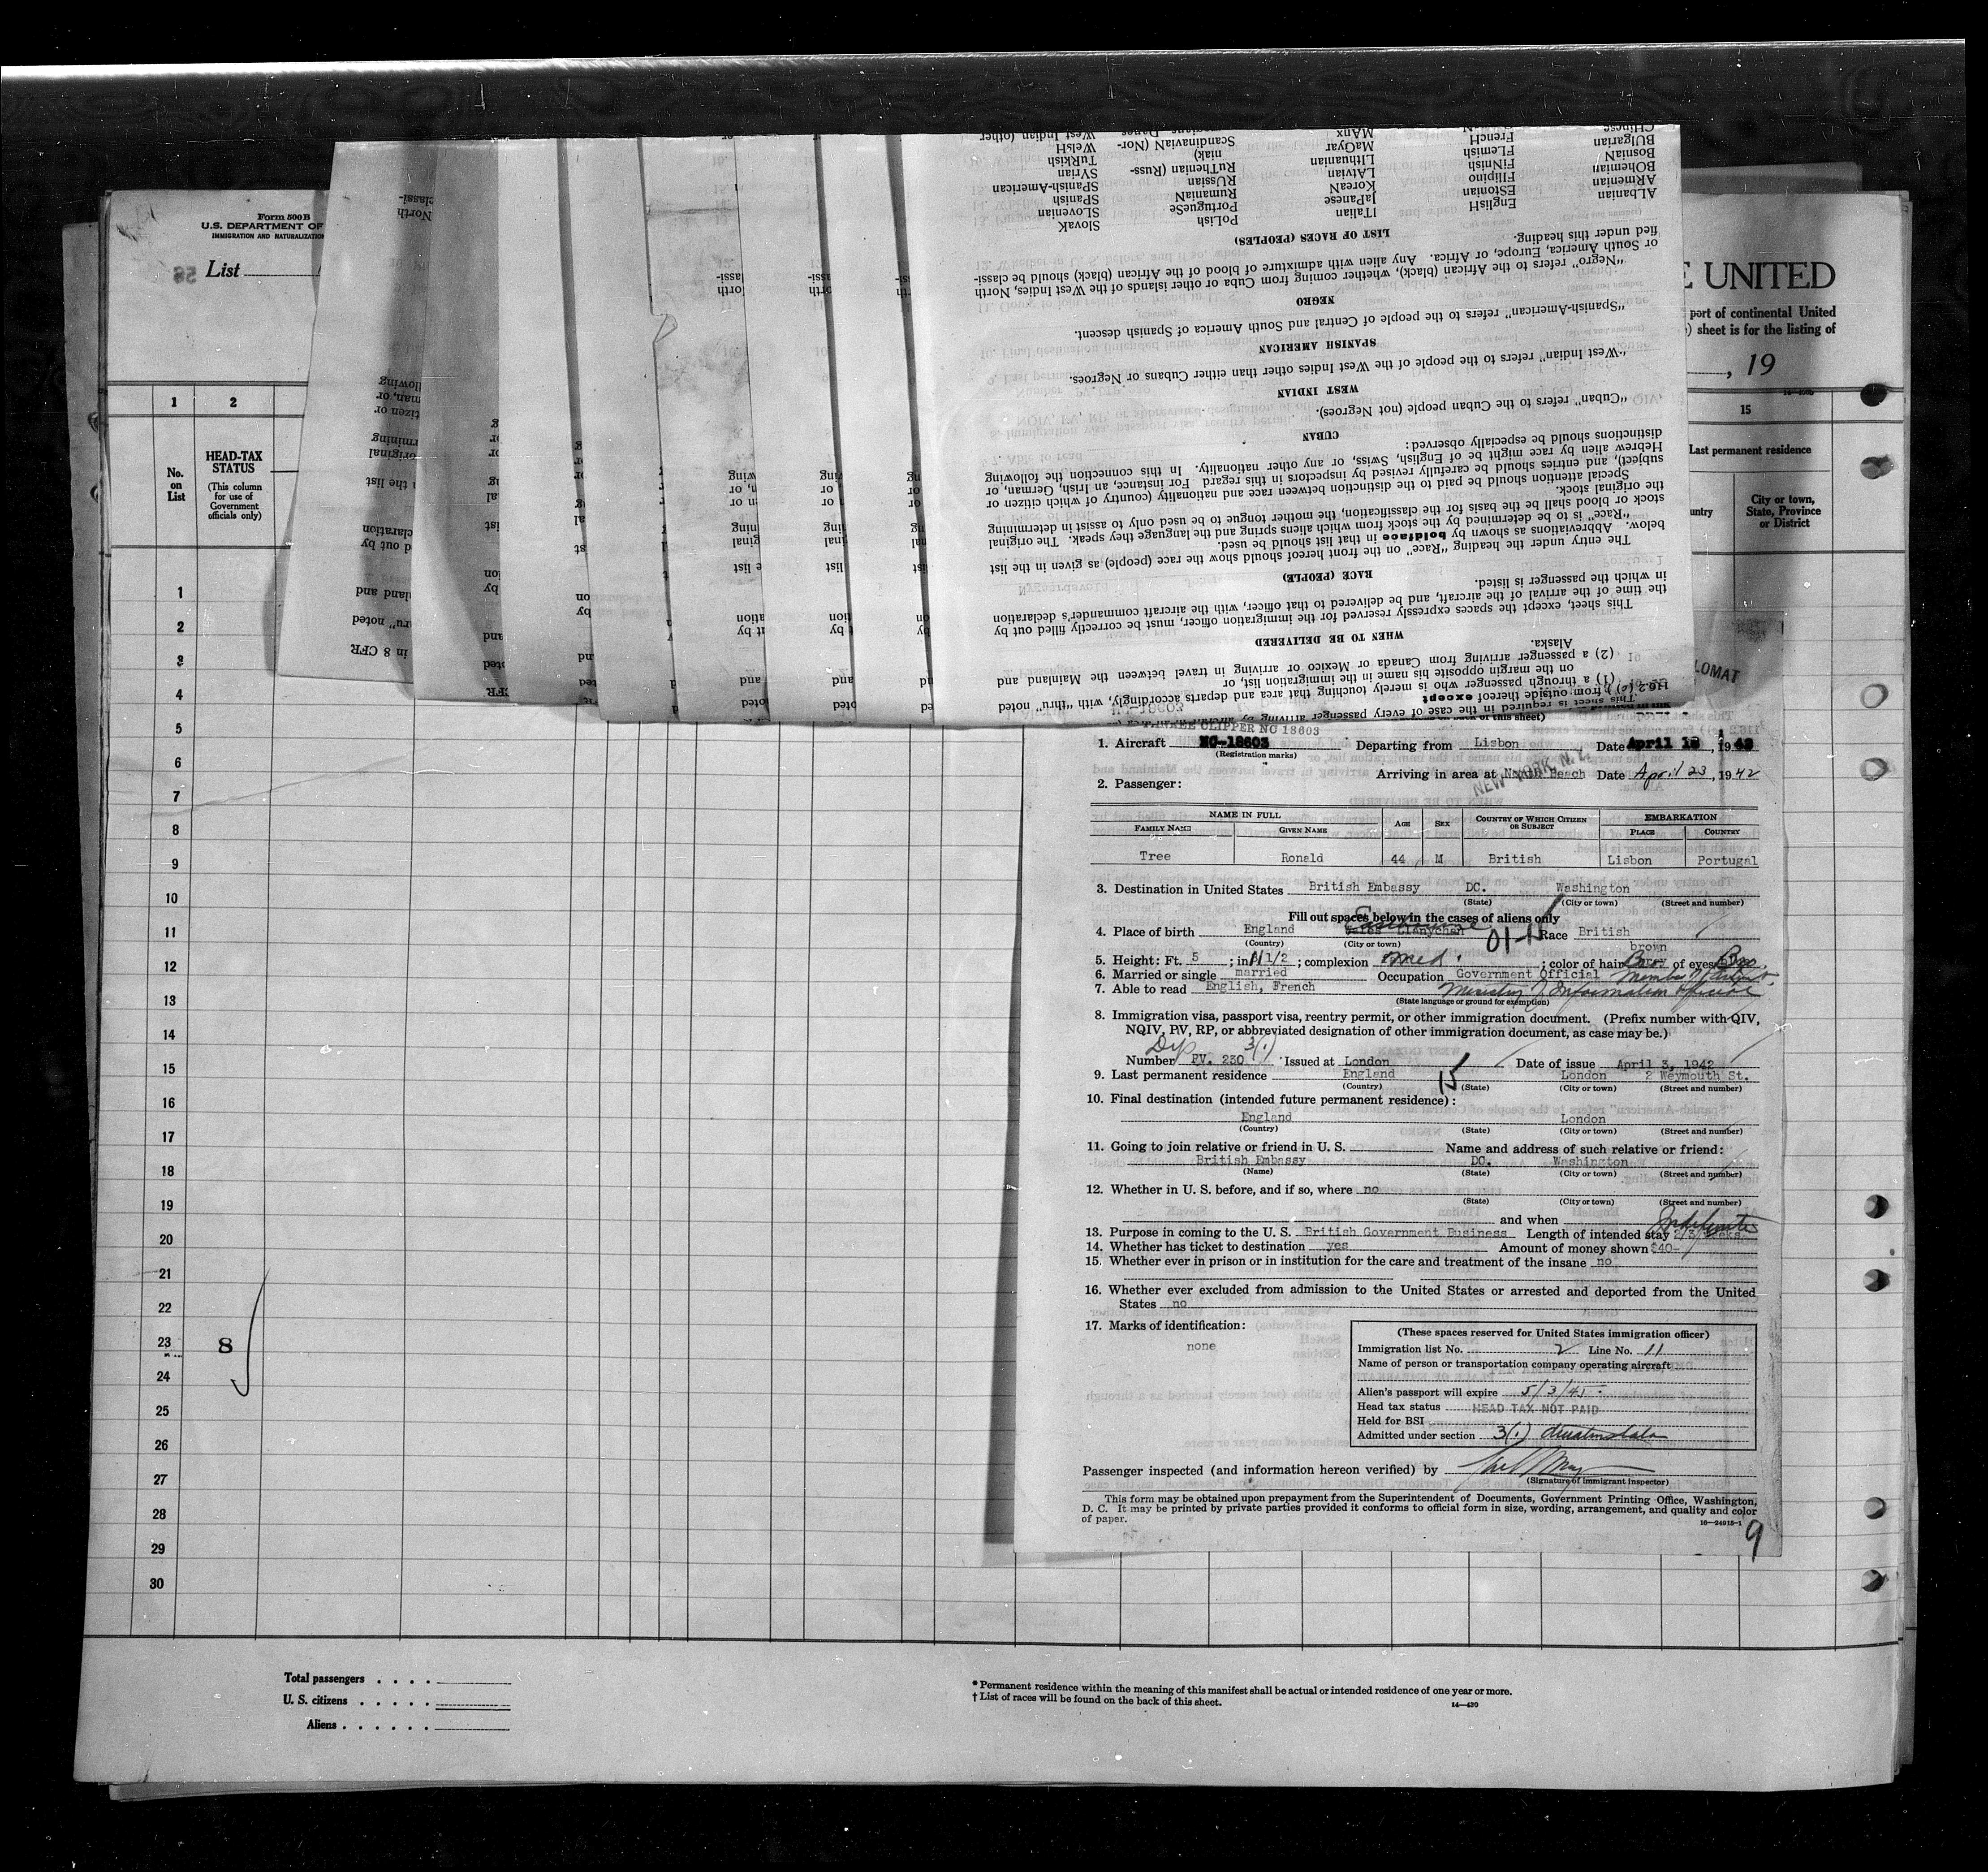 Form 500B
U.S. DEPARTMENT OF
IMMIGRATION AND NATURALIZATION
List
56
E UNITED
port of continental United
) sheet is for the listing of
, 19
1
2
15
No. on List
HEAD-TAX STATUS
(This column for use of Government officials only)
Last permanent residence
untry
City or town, State, Province or District
LOMAT
1
2
3
4
5
6
7
8
9
10
11
12
13
14
15
16
17
18
19
20
21
22
23
8
24
25
26
27
28
29
30
Total passengers . . . .
U. S. citizens . . . . .
Aliens . . . . . .
* Permanent residence within the meaning of this manifest shall be actual or intended residence of one year or more.
† List of races will be found on the back of this sheet.
14—430
This sheet is required in the case of every passenger arriving by
from outside thereof except
(1) a through passenger who is merely touching that area and departs accordingly, with "thru" noted
on the margin opposite his name in the immigration list, or
(2) a passenger arriving from Canada or Mexico or arriving in travel between the Mainland and
Alaska.
WHEN TO BE DELIVERED
This sheet, except the spaces expressly reserved for the immigration officer, must be correctly filled out by
the time of the arrival of the aircraft, and be delivered to that officer, with the aircraft commander's declaration
in which the passenger is listed.
RACE (PEOPLE)
The entry under the heading "Race" on the front hereof should show the race (people) as given in the list
below. Abbreviations as shown by boldface in that list should be used.
"Race" is to be determined by the stock from which aliens spring and the language they speak. The original
stock or blood shall be the basis for the classification, the mother tongue to be used only to assist in determining
the original stock.
Special attention should be paid to the distinction between race and nationality (country of which citizen or
subject), and entries should be carefully revised by inspectors in this regard For instance, an Irish, German, or
Hebrew alien by race might be of English, Swiss, or any other nationality. In this connection the following
distinctions should be especially observed:
CUBAN
"Cuban" refers to the Cuban people (not Negroes).
WEST INDIAN
"West Indian" refers to the people of the West Indies other than either Cubans or Negroes.
SPANISH AMERICAN
"Spanish-American" refers to the people of Central and South America of Spanish descent.
NEGRO
"Negro" refers to the African (black), whether coming from Cuba or other islands of the West Indies, North
or South America, Europe, or Africa. Any alien with admixture of blood of the African (black) should be classi-
fied under this heading.
LIST OF RACES (PEOPLES)
AlBanian EnglisH ITalian PoLish SlovaK
ARmenian EStonian JaPanese PortugueSe SLovenian
BOhemian Filipino KoreaN RumaniaN SPanish
BosniaN FiNnish LAtvian RUssian SPanish-American
BUlgarian FLemish LIthuanian RuThenian (Russ- SYrian
CHinese FrencH MaGyar niak) TuRkish
MAnx ScandinaviaN (Nor- WelsH
West Indian (other
CLIPPER NC 18603
1. Aircraft NC-18603 Departing from Lisbon Date April 18, 1942
(Registration marks)
Arriving in area at North Beach Date April 23, 1942
NEW YORK, N. Y.
2. Passenger:
NAME IN FULL AGE SEX COUNTRY OF WHICH CITIZEN OR SUBJECT EMBARKATION
FAMILY NAME GIVEN NAME PLACE COUNTRY
Tree Ronald 44 M British Lisbon Portugal
3. Destination in United States British Embassy DC. Washington
(State) (City or town) (Street and number)
Fill out spaces below in the cases of aliens only
4. Place of birth England Eastbourne 01-11 Race British
(Country) (City or town)
brown
5. Height: Ft. 5 ; in 1/2 ; complexion med. ; color of hair Bro of eyes Bro.
6. Married or single married Occupation Government Official
7. Able to read English, French Ministry of Information official
(State language or ground for exemption)
8. Immigration visa, passport visa, reentry permit, or other immigration document. (Prefix number with QIV,
NQIV, PV, RP, or abbreviated designation of other immigration document, as case may be.)
Dip 3(1)
Number PV. 230 Issued at London Date of issue April 3, 1942
9. Last permanent residence England 15 London 2 Weymouth St.
(Country) (State) (City or town) (Street and number)
10. Final destination (intended future permanent residence):
England London
(Country) (State) (City or town) (Street and number)
11. Going to join relative or friend in U. S. Name and address of such relative or friend:
British Embassy DC. Washington
(Name) (State) (City or town) (Street and number)
12. Whether in U. S. before, and if so, where no
(State) (City or town) (Street and number)
and when Indefinite
13. Purpose in coming to the U. S. British Government Business Length of intended stay 2/3 weeks
14. Whether has ticket to destination yes Amount of money shown $40-
15. Whether ever in prison or in institution for the care and treatment of the insane no
16. Whether ever excluded from admission to the United States or arrested and deported from the United
States no
17. Marks of identification:
none
(These spaces reserved for United States immigration officer)
Immigration list No. 2 Line No. 11
Name of person or transportation company operating aircraft
Alien's passport will expire 5/3/45
Head tax status HEAD TAX NOT PAID
Held for BSI
Admitted under section 3(1)
Passenger inspected (and information hereon verified) by
(Signature of immigrant inspector)
This form may be obtained upon prepayment from the Superintendent of Documents, Government Printing Office, Washington,
D. C. It may be printed by private parties provided it conforms to official form in size, wording, arrangement, and quality and color
of paper.
16—24915-1
9